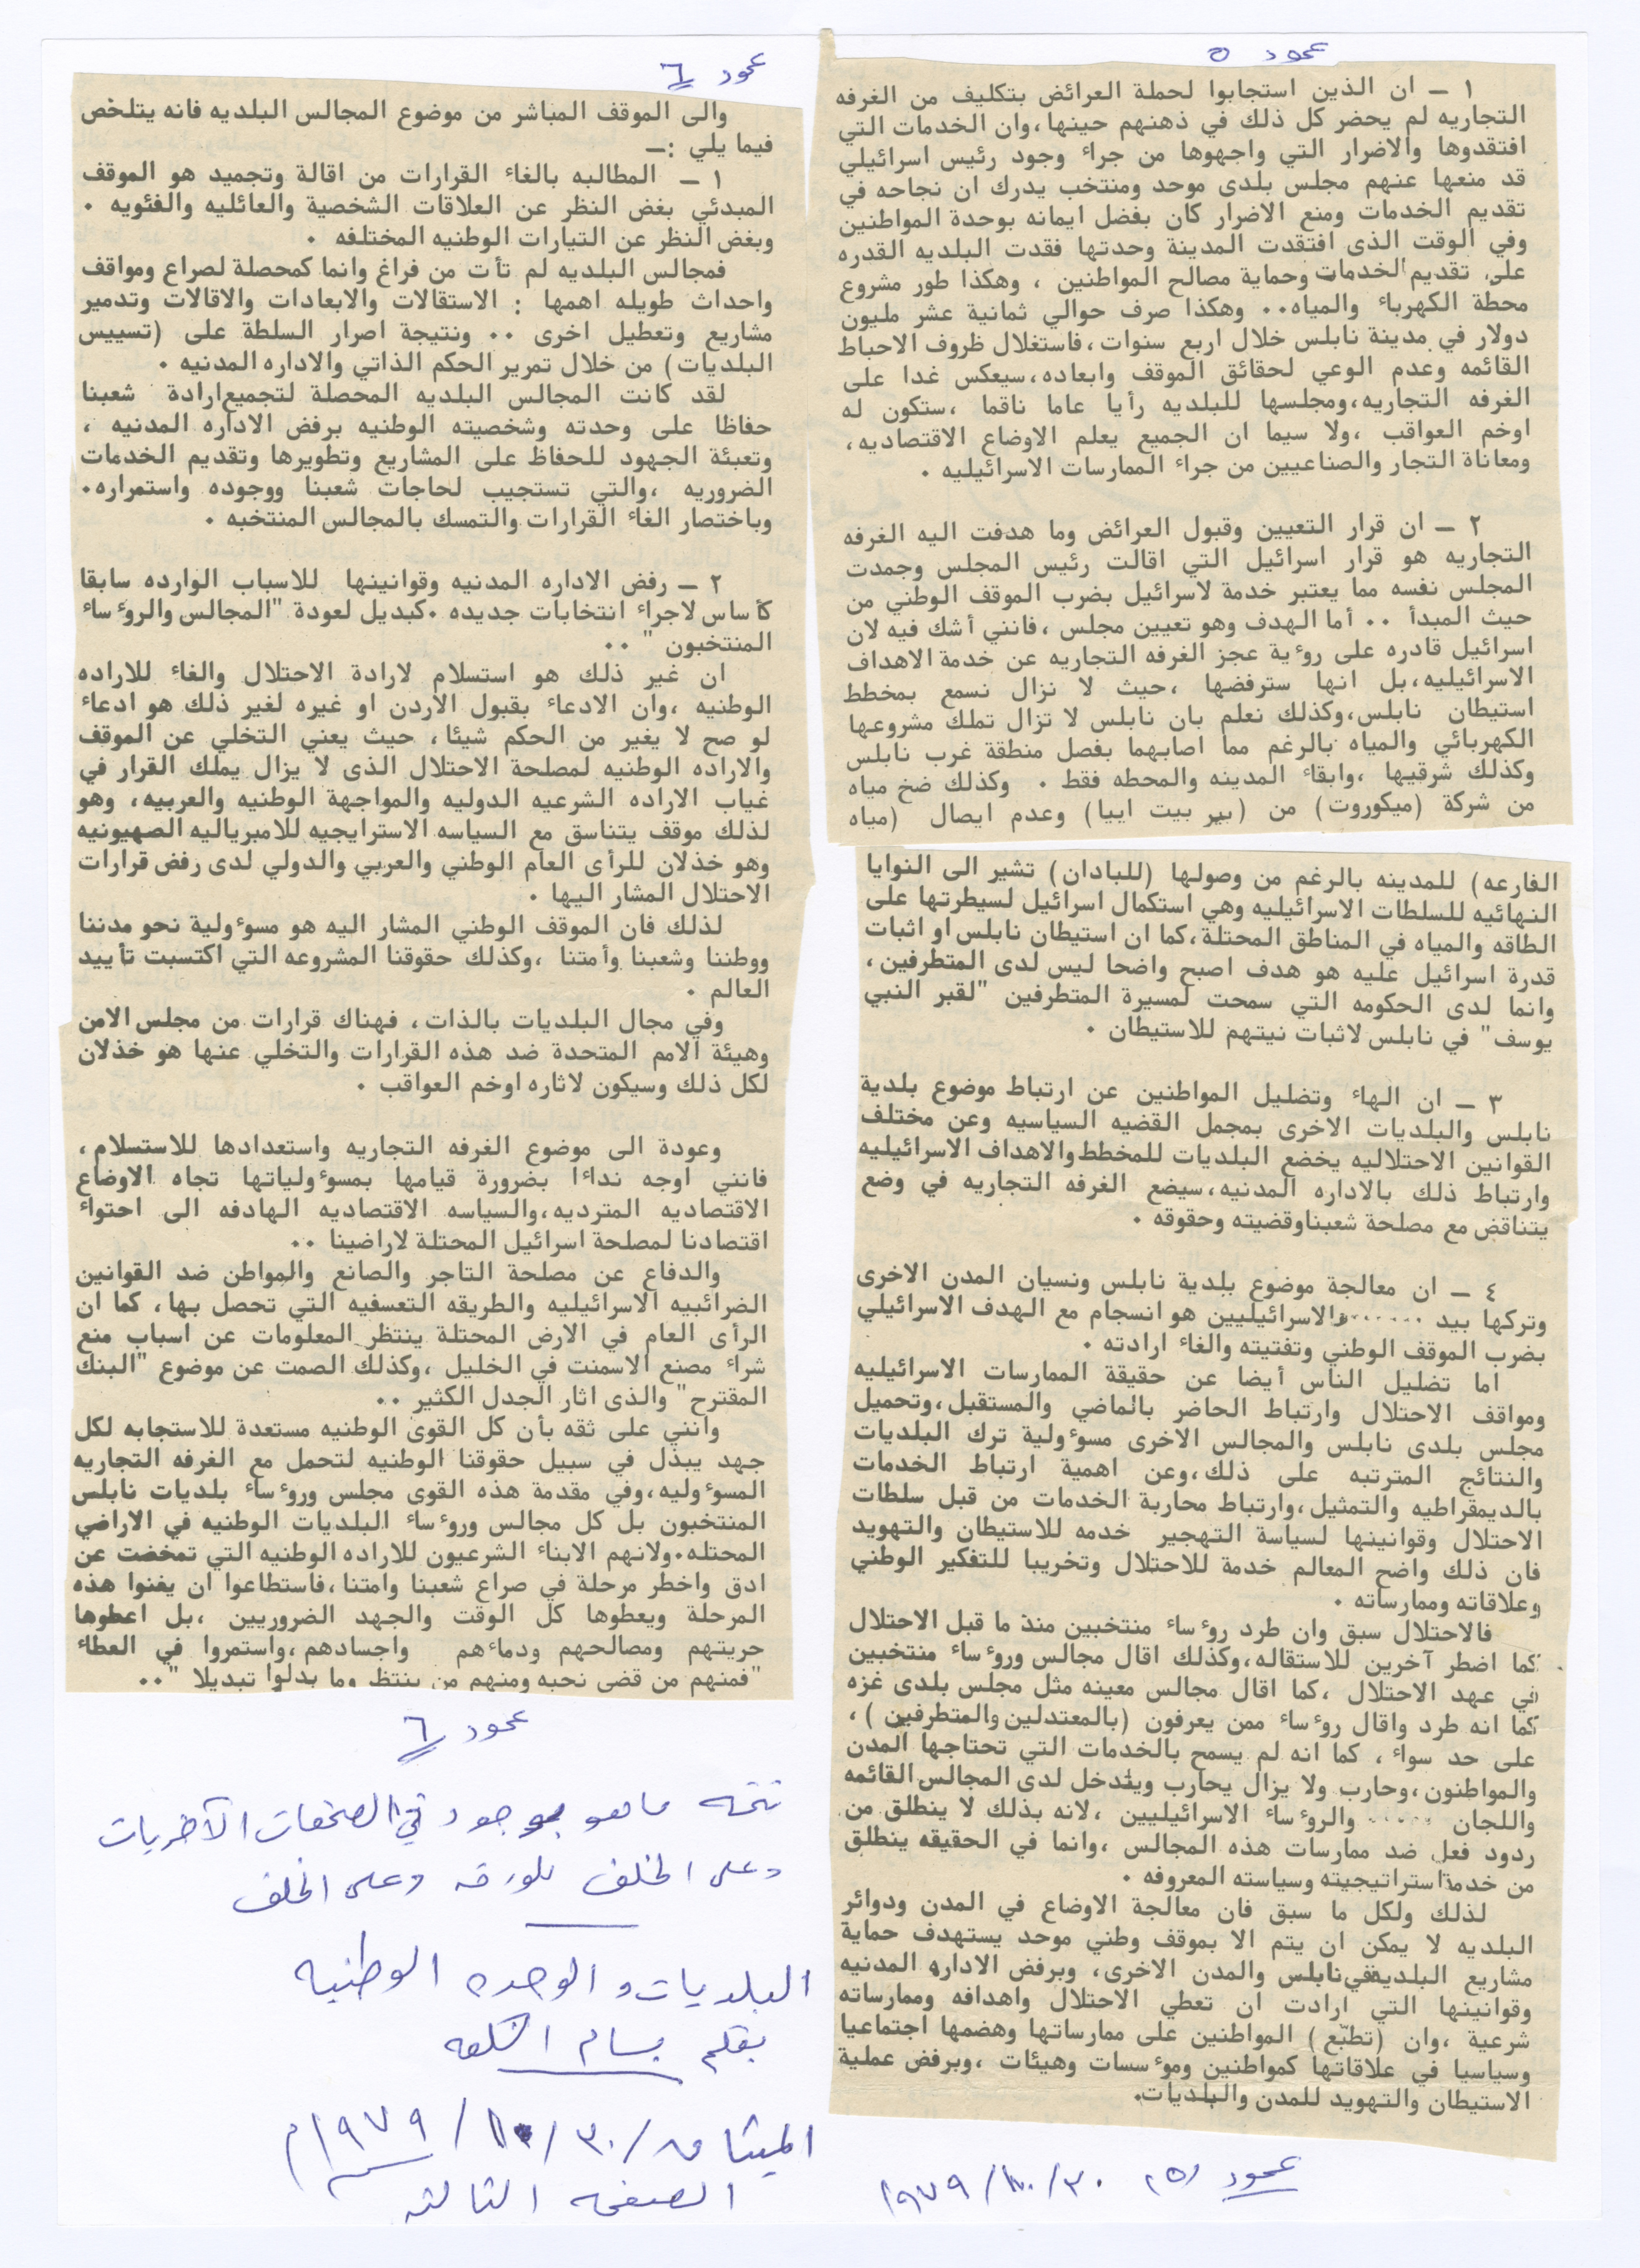 عمود ٥
١ – ان الذين استجابوا لحملة العرائض بتكليف من الغرفه
التجاريه لم يحضر كل ذلك في ذهنهم حينها،وان الخدمات التي
افتقدوها والاضرار التي واجهوها من جراء وجود رئيس اسرائيلي
قد منعها عنهم مجلس بلدى موحد ومنتخب يدرك ان نجاحه في
تقديم الخدمات ومنع الاضرار كان بفضل ايمانه بوحدة المواطنين
وفي الوقت الذى افتقدت المدينة وحدتها فقدت البلديه القدره
على تقديم الخدمات وحماية مصالح المواطنين ، وهكذا طور مشروع
محطة الكهرباء والمياه٠٠ وهكذا صرف حوالي ثمانية عشر مليون
دولار في مدينة نابلس خلال اربع سنوات،فاستغلال ظروف الاحباط
القائمه وعدم الوعي لحقائق الموقف وابعاده،سيعكس غدا على
الغرفه التجاريه،ومجلسها للبلديه رأيا عاما ناقما ،ستكون له
اوخم العواقب ،ولا سيما ان الجميع يعلم الاوضاع الاقتصاديه،
ومعاناة التجار والصناعيين من جراء الممارسات الاسرائيليه ٠
٢ – ان قرار التعيين وقبول العرائض وما هدفت اليه الغرفه
التجاريه هو قرار اسرائيل التي اقالت رئيس المجلس وجمدت
المجلس نفسه مما يعتبر خدمة لاسرائيل بضرب الموقف الوطني من
حيث المبدأ ٠٠ أما الهدف وهو تعيين مجلس ،فانني أشك فيه لان
اسرائيل قادره على روءية عجز الغرفه التجاريه عن خدمة الاهداف
الاسرائيليه،بل انها سترفضها ،حيث لا نزال نسمع بمخطط
استيطان نابلس،وكذلك نعلم بان نابلس لا تزال تملك مشروعها
الكهربائي والمياه بالرغم مما اصابهما بفصل منطقة غرب نابلس
وكذلك شرقيها ،وابقاء المدينه والمحطه فقط ٠ وكذلك ضخ مياه
من شركة (ميكوروت) من (بير بيت ايبا) وعدم ايصال (مياه
الفارعه) للمدينه بالرغم من وصولها (للبادان) تشير الى النوايا
النهائيه للسلطات الاسرائيليه وهي استكمال اسرائيل لسيطرتها على
الطاقه والمياه في المناطق المحتلة،كما ان استيطان نابلس او اثبات
قدرة اسرائيل عليه هو هدف اصبح واضحا ليس لدى المتطرفين ،
وانما لدى الحكومه التي سمحت لمسيرة المتطرفين "لقبر النبي
يوسف" في نابلس لاثبات نيتهم للاستيطان ٠
٣ – ان الهاء وتضليل المواطنين عن ارتباط موضوع بلدية
نابلس والبلديات الاخرى بمجمل القضيه السياسيه وعن مختلف
القوانين الاحتلاليه يخضع البلديات للمخطط والاهداف الاسرائيليه
وارتباط ذلك بالاداره المدنيه،سيضع الغرفه التجاريه في وضع
يتناقض مع مصلحة شعبناوقضيته وحقوقه ٠
٤ – ان معالجة موضوع بلدية نابلس ونسيان المدن الاخرى
وتركها بيد ٠٠٠٠٠٠والاسرائيليين هو انسجام مع الهدف الاسرائيلي
بضرب الموقف الوطني وتفتيته والغاء ارادته ٠
اما تضليل الناس أيضا عن حقيقة الممارسات الاسرائيليه
ومواقف الاحتلال وارتباط الحاضر بالماضي والمستقبل،وتحميل
مجلس بلدى نابلس والمجالس الاخرى مسوءولية ترك البلديات
والنتائج المترتبه على ذلك،وعن اهمية ارتباط الخدمات
بالديمقراطيه والتمثيل،وارتباط محاربة الخدمات من قبل سلطات
الاحتلال وقوانينها لسياسة التهجير خدمه للاستيطان والتهويد
فان ذلك واضح المعالم خدمة للاحتلال وتخريبا للتفكير الوطني
وعلاقاته وممارساته ٠
فالاحتلال سبق وان طرد روءساء منتخبين منذ ما قبل الاحتلال
كما اضطر آخرين للاستقاله،وكذلك اقال مجالس وروءساء منتخبين
في عهد الاحتلال ،كما اقال مجالس معينه مثل مجلس بلدى غزه
كما انه طرد واقال روءساء ممن يعرفون (بالمعتدلين والمتطرفين) ،
على حد سواء ، كما انه لم يسمح بالخدمات التي تحتاجها المدن
والمواطنون،وحارب ولا يزال يحارب ويتدخل لدى المجالس القائمه
واللجان ٠٠٠٠٠ والروءساء الاسرائيليين ،لانه بذلك لا ينطلق من
ردود فعل ضد ممارسات هذه المجالس ،وانما في الحقيقه ينطلق
من خدمة استراتيجيته وسياسته المعروفه ٠
لذلك ولكل ما سبق فان معالجة الاوضاع في المدن ودوائر
البلديه لا يمكن ان يتم الا بموقف وطني موحد يستهدف حماية
مشاريع البلدية في نابلس والمدن الاخرى، وبرفض الاداره المدنيه
وقوانينها التي ارادت ان تعطي الاحتلال واهدافه وممارساته
شرعية ،وان (تطبّع) المواطنين على ممارساتها وهضمها اجتماعيا
وسياسيا في علاقاتها كمواطنين وموءسسات وهيئات ،وبرفض عملية
الاستيطان والتهويد للمدن والبلديات٠
عمود (٥) ٣٠/١٠/١٩٧٩
عمود ٦
والى الموقف المباشر من موضوع المجالس البلديه فانه يتلخص
فيما يلي :–
١ – المطالبه بالغاء القرارات من اقالة وتجميد هو الموقف
المبدئي بغض النظر عن العلاقات الشخصية والعائليه والفئويه ٠
وبغض النظر عن التيارات الوطنيه المختلفه ٠
فمجالس البلديه لم تأت من فراغ وانما كمحصلة لصراع ومواقف
واحداث طويله اهمها : الاستقالات والابعادات والاقالات وتدمير
مشاريع وتعطيل اخرى ٠٠ ونتيجة اصرار السلطة على (تسييس
البلديات) من خلال تمرير الحكم الذاتي والاداره المدنيه ٠
لقد كانت المجالس البلديه المحصلة لتجميع ارادة شعبنا
حفاظا على وحدته وشخصيته الوطنيه برفض الاداره المدنيه ،
وتعبئة الجهود للحفاظ على المشاريع وتطويرها وتقديم الخدمات
الضروريه ،والتي تستجيب لحاجات شعبنا ووجوده واستمراره٠
وباختصار الغاء القرارات والتمسك بالمجالس المنتخبه ٠
٢ – رفض الاداره المدنيه وقوانينها للاسباب الوارده سابقا
كأساس لاجراء انتخابات جديده ٠كبديل لعودة "المجالس والروءساء
المنتخبون " ٠٠
ان غير ذلك هو استسلام لارادة الاحتلال والغاء للاراده
الوطنيه ،وان الادعاء بقبول الاردن او غيره لغير ذلك هو ادعاء
لو صح لا يغير من الحكم شيئا، حيث يعني التخلي عن الموقف
والاراده الوطنيه لمصلحة الاحتلال الذى لا يزال يملك القرار في
غياب الاراده الشرعيه الدوليه والمواجهة الوطنيه والعربيه، وهو
لذلك موقف يتناسق مع السياسه الاسترايجيه للامبرياليه الصهيونيه
وهو خذلان للرأى العام الوطني والعربي والدولي لدى رفض قرارات
الاحتلال المشار اليها ٠
لذلك فان الموقف الوطني المشار اليه هو مسوءولية نحو مدننا
ووطننا وشعبنا وأمتنا ،وكذلك حقوقنا المشروعه التي اكتسبت تأييد
العالم ٠
وفي مجال البلديات بالذات، فهناك قرارات من مجلس الامن
وهيئة الامم المتحدة ضد هذه القرارات والتخلي عنها هو خذلان
لكل ذلك وسيكون لاثاره اوخم العواقب ٠
وعودة الى موضوع الغرفه التجاريه واستعدادها للاستسلام ،
فانني اوجه نداءا بضرورة قيامها بمسوءولياتها تجاه الاوضاع
الاقتصاديه المترديه،والسياسه الاقتصاديه الهادفه الى احتواء
اقتصادنا لمصلحة اسرائيل المحتلة لاراضينا ٠٠
والدفاع عن مصلحة التاجر والصانع والمواطن ضد القوانين
الضرائبيه الاسرائيليه والطريقه التعسفيه التي تحصل بها، كما ان
الرأى العام في الارض المحتلة ينتظر المعلومات عن اسباب منع
شراء مصنع الاسمنت في الخليل ،وكذلك الصمت عن موضوع "البنك
المقترح" والذى اثار الجدل الكثير ٠٠
وانني على ثقه بأن كل القوى الوطنيه مستعدة للاستجابه لكل
جهد يبذل في سبيل حقوقنا الوطنيه لتحمل مع الغرفه التجاريه
المسوءوليه،وفي مقدمة هذه القوى مجلس وروءساء بلديات نابلس
المنتخبون بل كل مجالس وروءساء البلديات الوطنيه في الاراضي
المحتله٠ولانهم الابناء الشرعيون للاراده الوطنيه التي تمخضت عن
ادق واخطر مرحلة في صراع شعبنا وامتنا،فاستطاعوا ان يغنوا هذه
المرحلة ويعطوها كل الوقت والجهد الضروريين ،بل اعطوها
حريتهم ومصالحهم ودماءهم واجسادهم،واستمروا في العطاء
"فمنهم من قضى نحبه ومنهم من ينتظر وما بدلوا تبديلا "٠٠
عمود ٦
تتمه ما هو موجود في الصفحات الأخريات
وعلى الخلف للورقه وعلى الخلف
البلديات والوحده الوطنيه
بقلم بسام الشكعه
الميثاق /٣٠/١٠/١٩٧٩م
الصفحه الثالثه